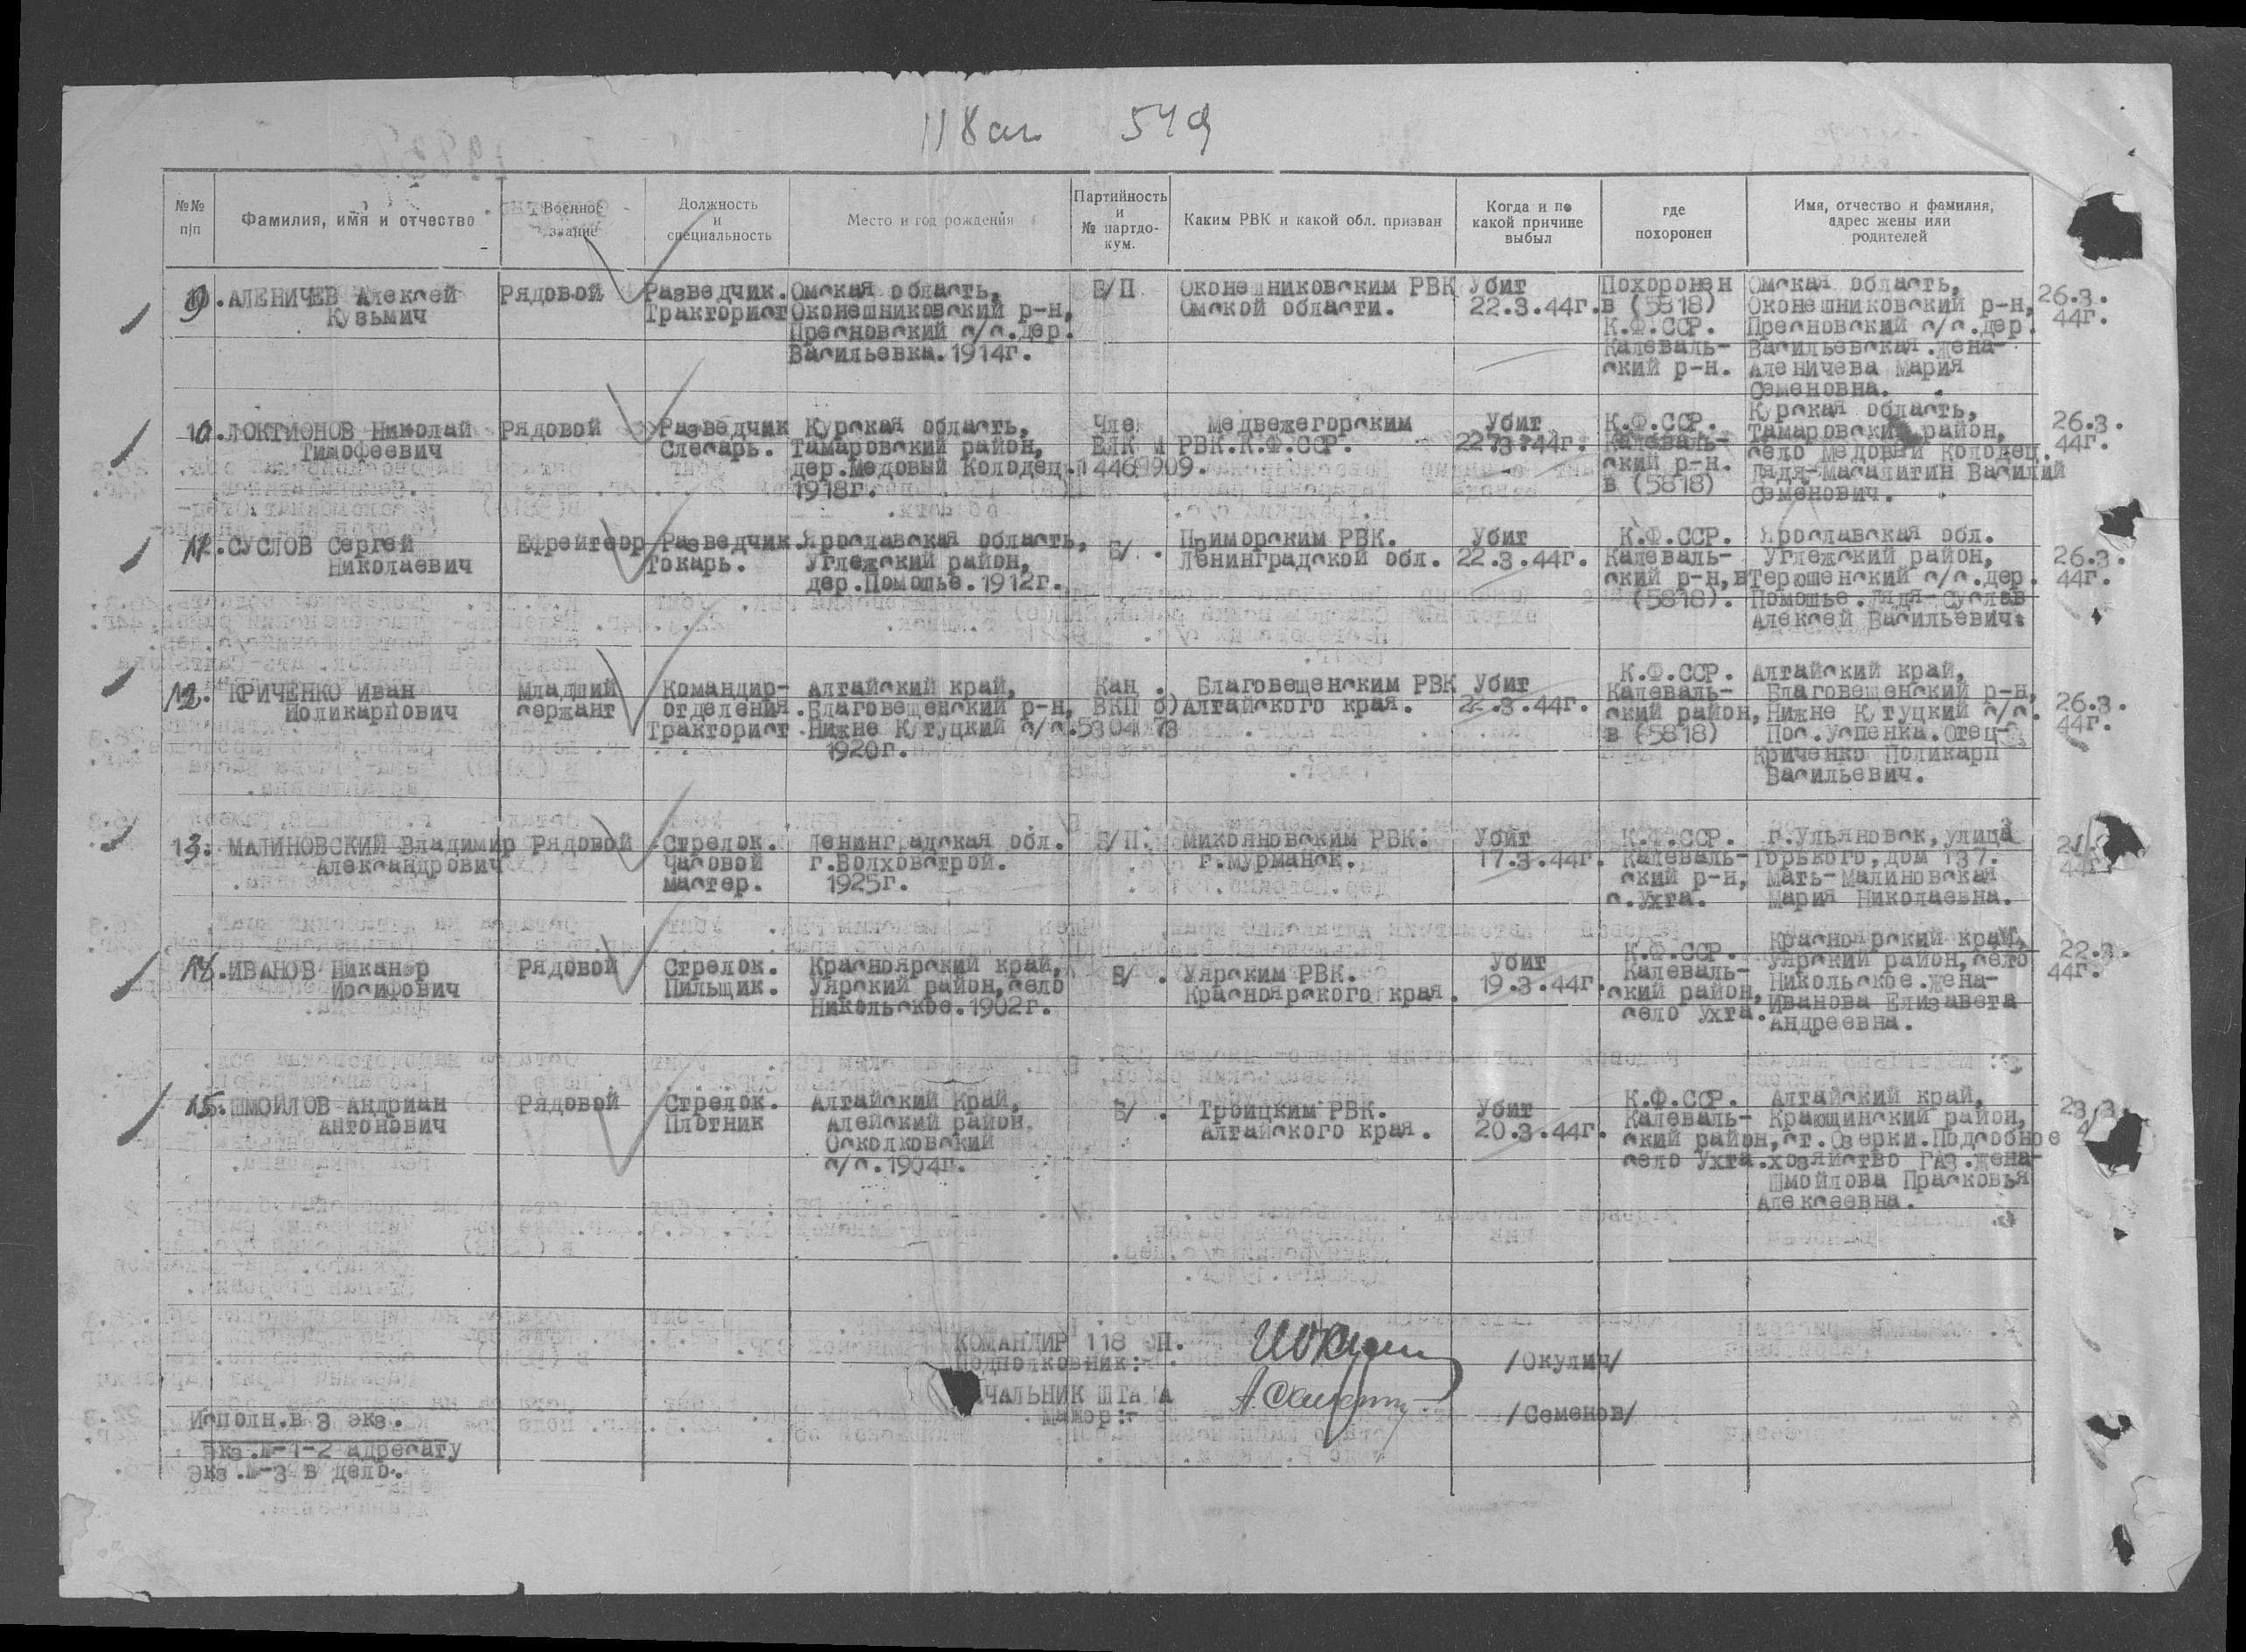 118 сп 549
№№ п/п
Фамилия, имя и отчество
Военное звание
Должность и специальность
Место и год рождения
Партийность и № партдокум.
Каким РВК и какой обл. призван
Когда и по какой причине выбыл
где похоронен
Имя, отчество и фамилия, адрес жены или родителей
9. АЛЕНИЧЕВ Алексей
Кузьмич
Рядовой
Разведчик.
Тракторист
Омская область,
Оконешниковский р-н,
Пресновский с/с.дер.
Васильевка.1914г.
Б/П
Оконешниковским РВК
Омской области.
Убит
22.3.44г.
Похоронен
в (5818)
К.Ф.ССР.
Калеваль-
ский р-н.
Омская область,
Оконешниковский р-н,
Пресновский с/с.дер.
Васильевская.жена-
Аленичева Мария
Семеновна.
26.3.
44г.
10.ЛОКТИОНОВ Николай
Тимофеевич
Рядовой
Разведчик
Слесарь.
Курская область,
Тамаровский район,
дер.Медовый Колодец.
1918г.
Чле
ВЛК М
4468909.
Медвежегорским
РВК.К.Ф.ССР.
Убит
22.3.44г.
К.Ф.ССР.
Калеваль-
ский р-н.
в (5818)
Курская область,
Тамаровский район,
село Медовый Колодец.
Дядя-Масалитин Василий
Семенович.
26.3.
44г.
11.СУСЛОВ Сергей
Николаевич
Ефрейтеор
Разведчик.
Токарь.
Ярославская область,
Углежский район,
дер.Помошье.1912г.
Б/ .
Приморским РВК.
Ленинградской обл.
Убит
22.3.44г.
К.Ф.ССР.
Калеваль-
ский р-н,в
(5818).
Ярославская обл.
Углежский район,
Терюшенский с/с.дер.
Помошье.Дядя-Суслов
Алексей Васильевич.
26.3.
44г.
12. КРИЧЕНКО Иван
Поликарпович
Младший
сержант
Командир-
отделения.
Тракторист
Алтайский край,
Благовещенский р-н,
Нижне Кутуцкий с/с.
1920г.
Кан .
ВКП б)
5304 73
Благовещенским РВК
Алтайского края.
Убит
22.3.44г.
К.Ф.ССР.
Калеваль-
ский район,
в (5818)
Алтайский край,
Благовещенский р-н,
Нижне Кутуцкий с/с.
Пос.Успенка.Отец-
Криченко Поликарп
Васильевич.
26.3.
44г.
13. МАЛИНОВСКИЙ Владимир
Александрович
Рядовой
Стрелок.
Часовой
мастер.
Ленинградская обл.
г.Волховстрой.
1925г.
Б/П.
Микояновским РВК.
г.Мурманск.
Убит
17.3.44г.
К.Ф.ССР.
Калеваль-
ский р-н,
с.Ухта.
г.Ульяновск,улица
Горького,дом 137.
Мать-Малиновская
Мария Николаевна.
44г.
14.ИВАНОВ Никанор
Иосифович
Рядовой
Стрелок.
Пильщик.
Красноярский край,
Уярский район,село
Никольское.1902г.
Б/ .
Уярским РВК.
Красноярского края.
Убит
19.3.44г.
К.Ф.ССР.
Калеваль-
ский район,
село Ухта.
Красноярский край,
Уярский район,село
Никольское.жена-
Иванова Елизавета
Андреевна.
22.3.
44г.
15.ШМОЙЛОВ Андриан
Антонович
Рядовой
Стрелок.
Плотник
Алтайский Край,
Алейский район,
Осколковский
с/с.1904г.
Б/ .
Троицким РВК.
Алтайского края.
Убит
20.3.44г.
К.Ф.ССР.
Калеваль-
ский район,
село Ухта.
Алтайский край,
Крающинский район,
ст.Озерки.Подсобное
хозяйство ГАЗ.жена-
Шмойлова Прасковья
Алексеевна.
23.3.
КОМАНДИР 118 СП.
Подполковник:-
/Окулич/
ЧАЛЬНИК ШТА А
Майор:-
/Семенов/
Исполн.в 3 экз.
Экз.№-1-2 адресату
Экз.№-3 в дело.